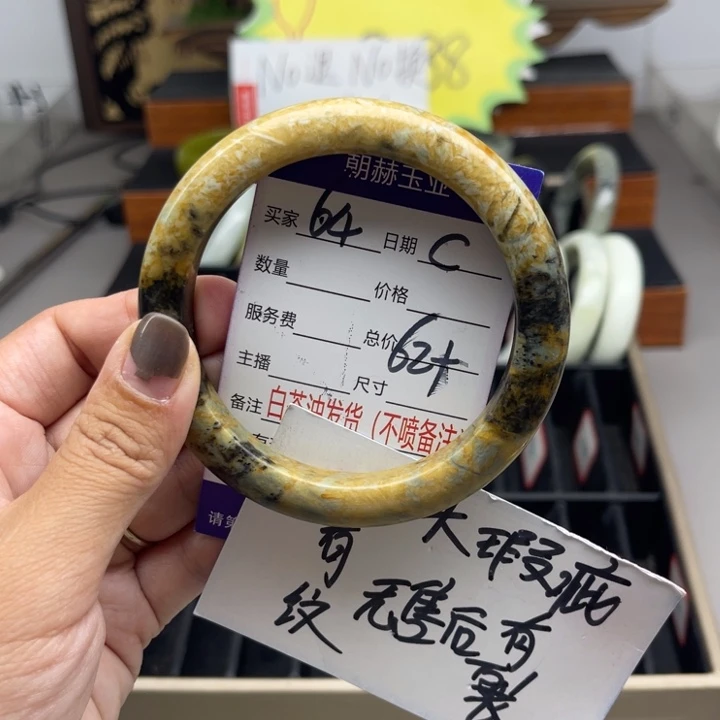 No退 No换 88
朝赫玉业
买家 64 日期 C
数量 价格
服务费 总价 62+
主播 尺寸
备注 白茶冲发货（不喷备注
请第
有 大瑕疵
纹 无售后有
裂